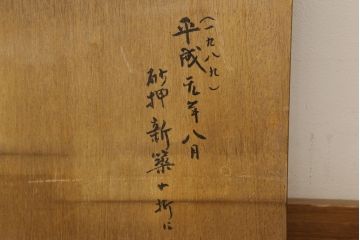 (一九八九)
平成元年八月
砂押新築の折に